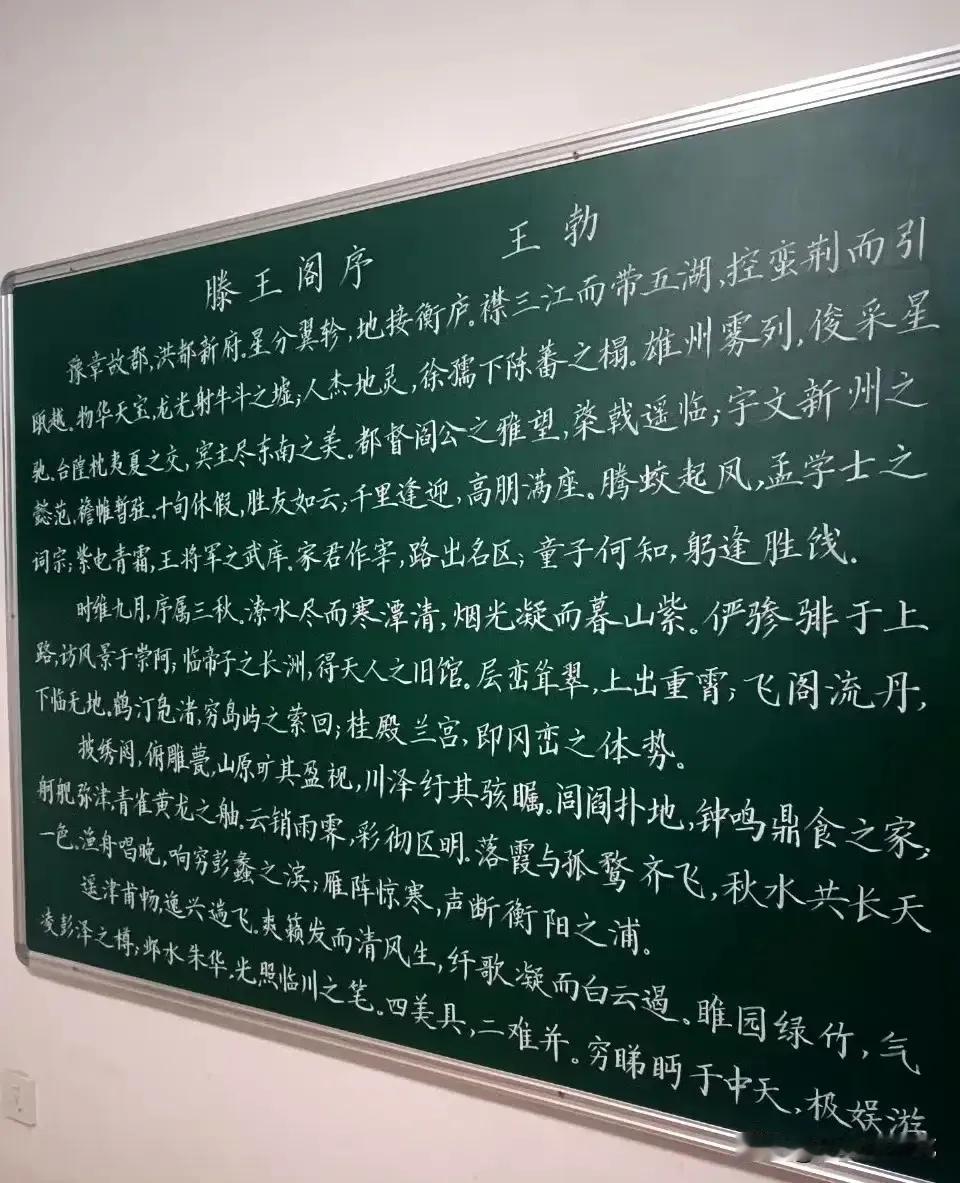 滕王阁序 王勃
豫章故郡,洪都新府.星分翼轸,地接衡庐.襟三江而带五湖,控蛮荆而引
瓯越.物华天宝,龙光射牛斗之墟;人杰地灵,徐孺下陈蕃之榻.雄州雾列,俊采星
驰.台隍枕夷夏之交,宾主尽东南之美.都督阎公之雅望,棨戟遥临;宇文新州之
懿范,襜帷暂驻.十旬休假,胜友如云;千里逢迎,高朋满座。腾蛟起风,孟学士之
词宗;紫电青霜,王将军之武库.家君作宰,路出名区;童子何知,躬逢胜饯.
时维九月,序属三秋.潦水尽而寒潭清,烟光凝而暮山紫。俨骖騑于上
路,访风景于崇阿;临帝子之长洲,得天人之旧馆。层峦耸翠,上出重霄;飞阁流丹,
下临无地.鹤汀凫渚,穷岛屿之萦回;桂殿兰宫,即冈峦之体势。
披绣闼,俯雕甍,山原旷其盈视,川泽纡其骇瞩.闾阎扑地,钟鸣鼎食之家;
舸舰弥津,青雀黄龙之舳.云销雨霁,彩彻区明.落霞与孤鹜齐飞,秋水共长天
一色.渔舟唱晚,响穷彭蠡之滨;雁阵惊寒,声断衡阳之浦。
遥津甫畅,逸兴遄飞.爽籁发而清风生,纤歌凝而白云遏。睢园绿竹,气
凌彭泽之樽;邺水朱华,光照临川之笔。四美具,二难并。穷睇眄于中天,极娱游